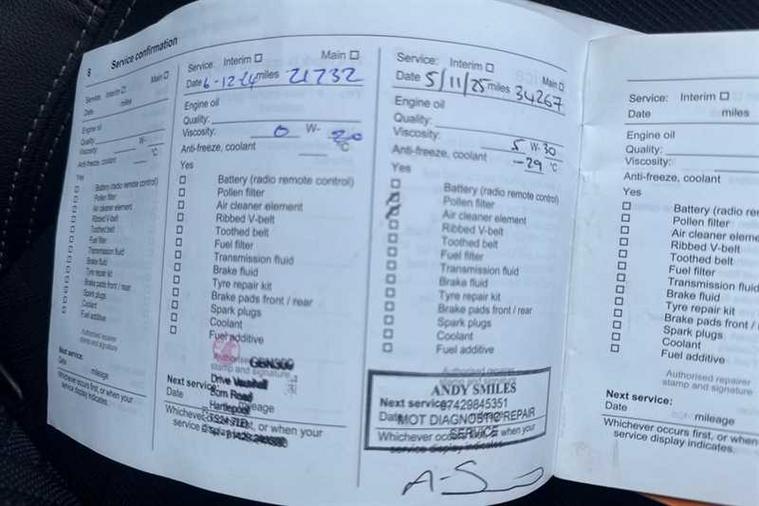 8 Service confirmation
Service: Interim ☐ Main ☐
Date miles
Engine oil
Quality:
Viscosity: W-
Anti-freeze, coolant °C
Yes
☐ Battery (radio remote control)
☐ Pollen filter
☐ Air cleaner element
☐ Ribbed V-belt
☐ Toothed belt
☐ Fuel filter
☐ Transmission fluid
☐ Brake fluid
☐ Tyre repair kit
☐ Brake pads front / rear
☐ Spark plugs
☐ Coolant
☐ Fuel additive
Authorised repairer
stamp and signature
Next service:
Date mileage
Whichever occurs first, or when your
service display indicates.
Service: Interim ☐ Main ☐
Date 6-12-24 miles 21732
Engine oil
Quality:
Viscosity: 0 W- 20
Anti-freeze, coolant °C
Yes
☐ Battery (radio remote control)
☐ Pollen filter
☐ Air cleaner element
☐ Ribbed V-belt
☐ Toothed belt
☐ Fuel filter
☐ Transmission fluid
☐ Brake fluid
☐ Tyre repair kit
☐ Brake pads front / rear
☐ Spark plugs
☐ Coolant
☐ Fuel additive
Authorised
stamp and signature
Drive Vauxhall
Next service:
Road
Date Hartlepool mileage
Whichever occurs first, or when your
service
Service: Interim ☐ Main ☐
Date 5/11/25 miles 34267
Engine oil
Quality:
Viscosity: 5 W- 30
Anti-freeze, coolant -29 °C
Yes
☐ Battery (radio remote control)
☑ Pollen filter
☑ Air cleaner element
☐ Ribbed V-belt
☐ Toothed belt
☐ Fuel filter
☐ Transmission fluid
☐ Brake fluid
☐ Tyre repair kit
☐ Brake pads front / rear
☐ Spark plugs
☐ Coolant
☐ Fuel additive
Authorised repairer
ANDY SMILES
Next service: 07429845351
Date MOT DIAGNOSTIC REPAIR
SERVICE
Whichever occurs first, or when your
service display indicates.
A-S
Service: Interim ☐
Date miles
Engine oil
Quality:
Viscosity:
Anti-freeze, coolant
Yes
☐ Battery (radio re
☐ Pollen filter
☐ Air cleaner eleme
☐ Ribbed V-belt
☐ Toothed belt
☐ Fuel filter
☐ Transmission fluid
☐ Brake fluid
☐ Tyre repair kit
☐ Brake pads front /
☐ Spark plugs
☐ Coolant
☐ Fuel additive
Authorised repairer
stamp and signature
Next service:
Date mileage
Whichever occurs first, or when
service display indicates.